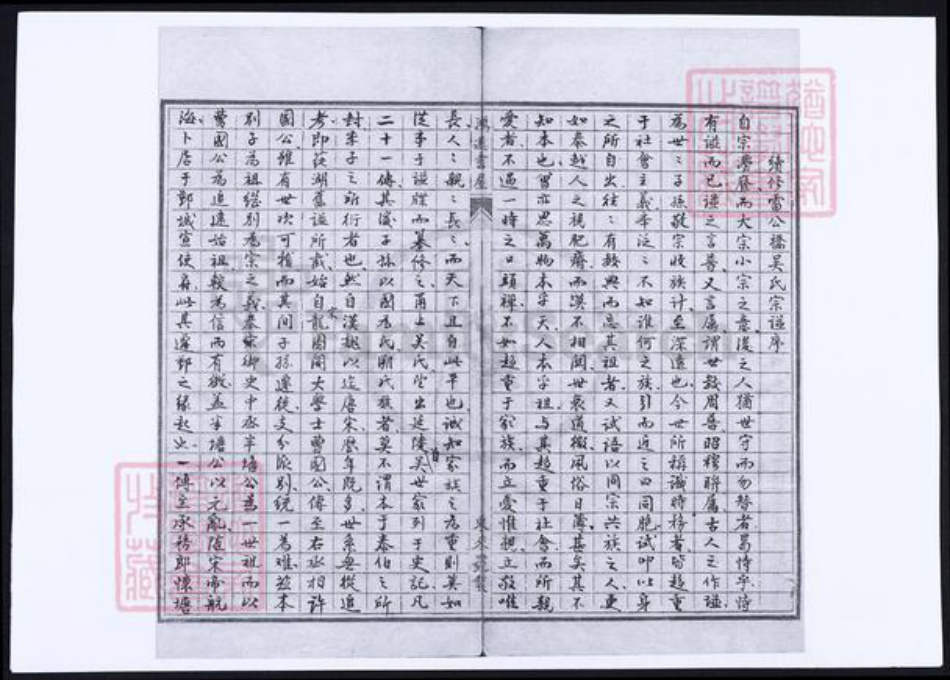 續修雷公橋吳氏宗譜序
自宗灋廢而大宗小宗之意後之人猶世守而勿替者曷恃乎恃
有譜而已譜之言普又言屬謂世數周普昭穆聯屬古人之作譜
為世〻子孫敬宗收族計至深遠也今世所稱識時務者皆趨重
于社會主義奉泛〻不知誰何之族引而近之曰同胞試叩以身
之所自出往〻有數典而忘其祖者又試語以同宗共族之人更
如秦越人之視肥瘠而漠不相關世衰道微風俗日薄甚矣其不
知本也曾亦思萬物本乎天人本乎祖與其趨重于社會而所親
愛者不過一時之口頭禪不如趨重于家族而立愛惟親立敬惟
長人〻親〻長〻而天下且自此平也誠知家族之為重則莫如
從事于譜牒而纂修之甬上吳氏望出延陵吳世家列于史記凡
二十一傳其後子孫以國為氏明氏族者莫不謂本于泰伯之所
封季子之所衍者也然自漢魏以迄唐宋歷年既多世系無從追
考即茭湖舊譜所載始自龍圖閣大學士曹國公傳至右丞相許
國公雖有世次可稽而其間子孫遷徙支分派別統一為難茲本
別子為祖繼別為宗之義奉宋御史中丞半塘公為一世祖而以
曹國公為追遠始祖較為信而有徵蓋半塘公以元亂隨宋帝航
海卜居于鄞城宣使巷此其遷鄞之緣起也一傳至承務郎懷塘